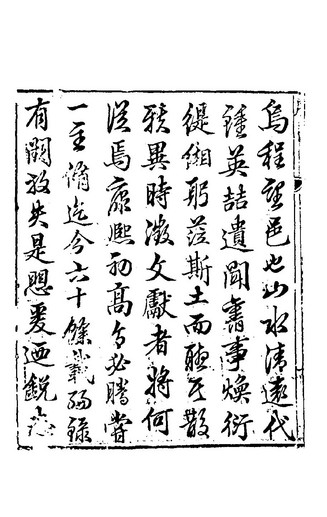 烏程望邑也山水清遠代
鍾英喆遺聞舊事煥衍
緹緗躬蒞斯土而聽其散
軼異時徵文獻者將何
從焉康熙初高令必騰嘗
一重脩迄今六十餘載紀錄
有闕放失是思爰迺銳志